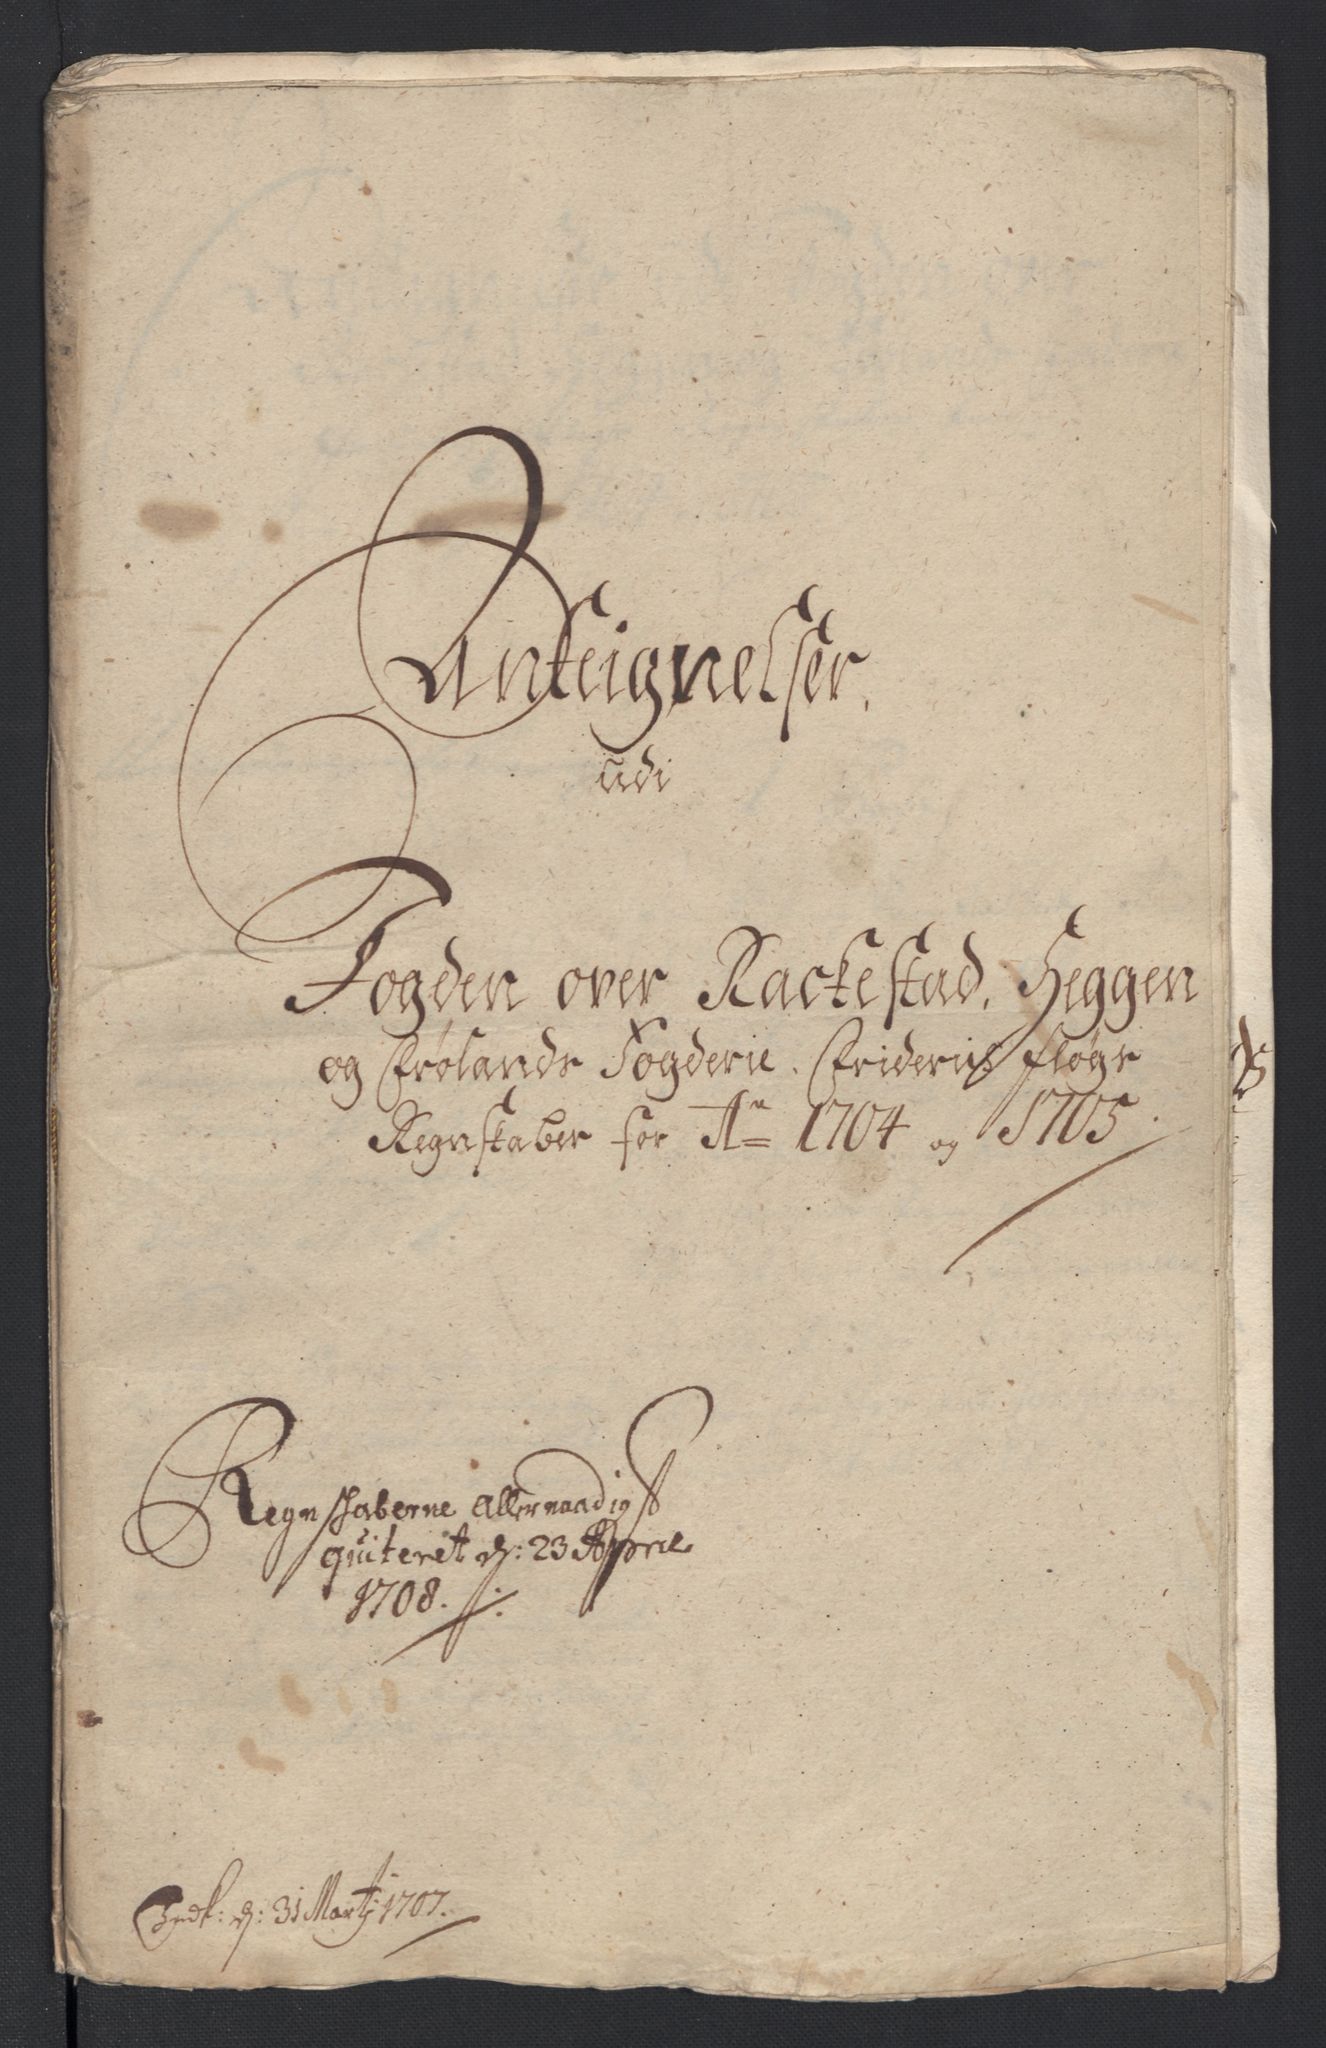 Anteignelser,
udi
Fogden over Rackestad, Heggen
og Frølands Fogderie, Friderich fløgs
Regnskaber for Aº 1704 og 1705.
Regnskaberne allernaadigst
quiteret d: 23 Aprile
1708.
Indk: d: 31 Martj 1707.